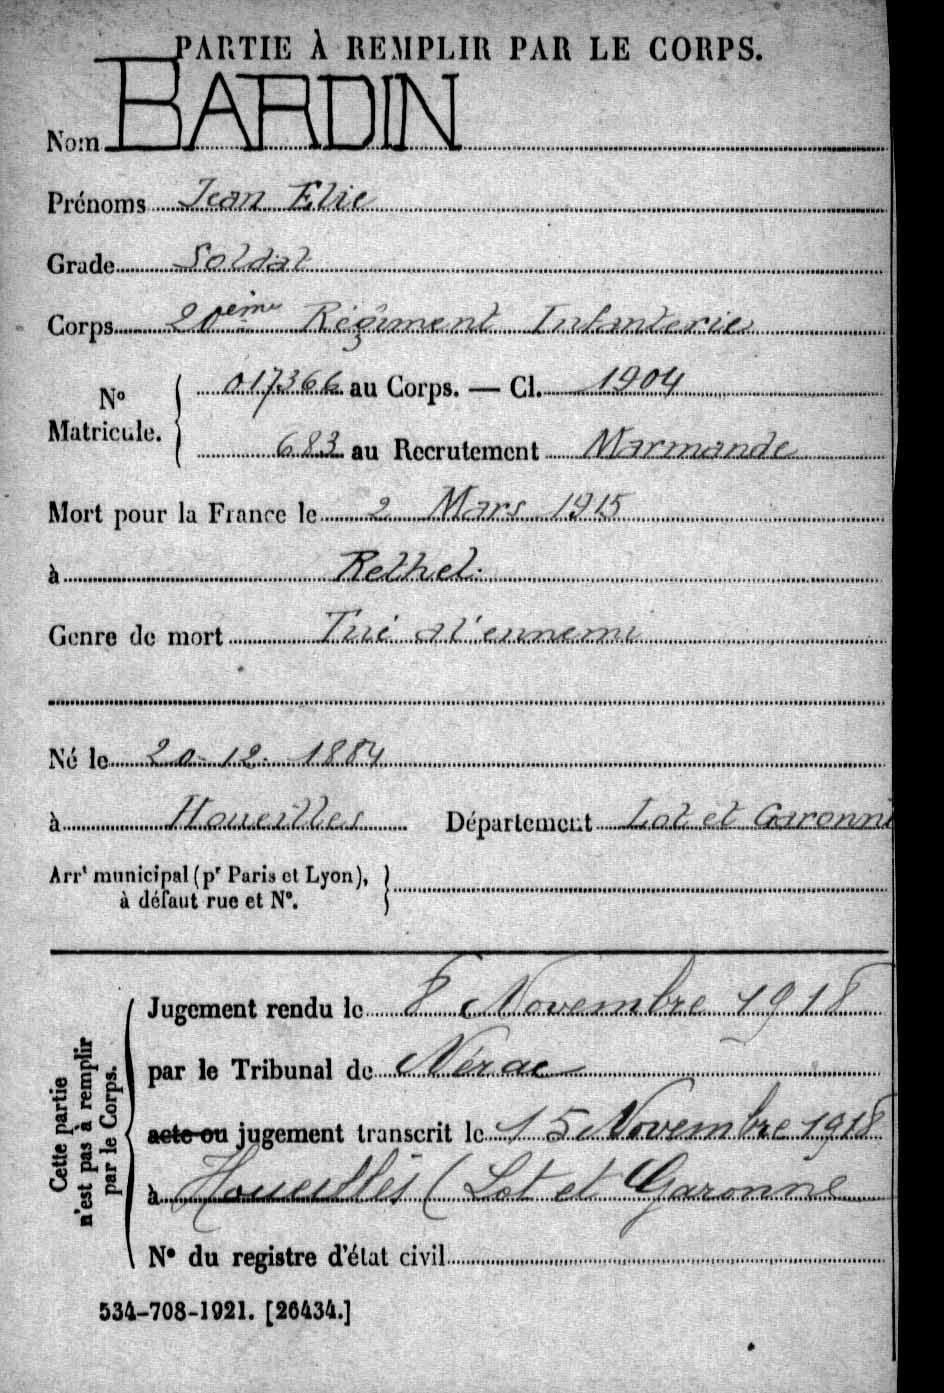 PARTIE À REMPLIR PAR LE CORPS.
Nom BARDIN
Prénoms Jean Elie
Grade Soldat
Corps 20ème Régiment Infanterie
No Matricule. 017366 au Corps. — Cl. 1904
683 au Recrutement Marmande
Mort pour la France le 2 Mars 1915
à Rethel.
Genre de mort Tué a l'ennemi
Né le 20-12-1884
à Houeilles Département Lot et Garonne
Arrt municipal (pr Paris et Lyon),
à défaut rue et No.
Cette partie
n'est pas à remplir
par le Corps.
Jugement rendu le 8 Novembre 1918
par le Tribunal de Nérac
acte ou jugement transcrit le 15 Novembre 1918
à Houeillès (Lot et Garonne
No du registre d'état civil
534-708-1921. [26434.]